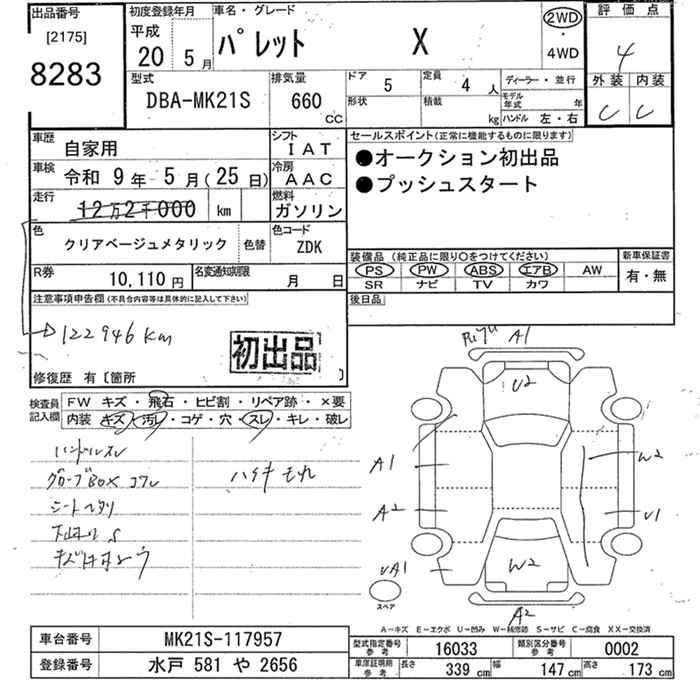 出品番号
[2175]
8283
初度登録年月
平成
20 5月
車名・グレード
パレット X
2WD
・
4WD
評価点
4
外装 内装
C C
型式
DBA-MK21S
排気量
660
CC
ドア 5
形状
定員 4 人
積載 kg
ディーラー・並行
モデル年式 年
ハンドル 左・右
車歴 自家用
シフト IAT
車検 令和 9年 5月(25日)
冷房 AAC
走行 12万2千000 km
燃料 ガソリン
色 クリアベージュメタリック 色替
色コード ZDK
R券 10,110円
名変通知期限 月 日
セールスポイント(正常に機能するものに限ります)
●オークション初出品
●プッシュスタート
装備品(純正品に限り○をつけてください)
PS PW ABS エアB AW
SR ナビ TV カワ
新車保証書
有・無
後日品
注意事項申告欄(不具合内容等は具体的に記入して下さい)
122946km
初出品
修復歴 有〔箇所 〕
検査員記入欄
FW キズ・飛石・ヒビ割・リペア跡・×要
内装 キズ・汚レ・コゲ・穴・スレ・キレ・破レ
ハンドルスレ
グローブBOXコワレ
シートヘタリ
ハゲキモレ
A1
U2
A1
A2
UA1
W2
U1
W2
A2
スペア
A-キズ E-エクボ U-凹み W-補修跡 S-サビ C-腐食 XX-交換済
車台番号 MK21S-117957
登録番号 水戸 581 や 2656
型式指定番号 参考 16033
類別区分番号 参考 0002
車庫証明用 参考 長さ 339 cm 幅 147 cm 高さ 173 cm